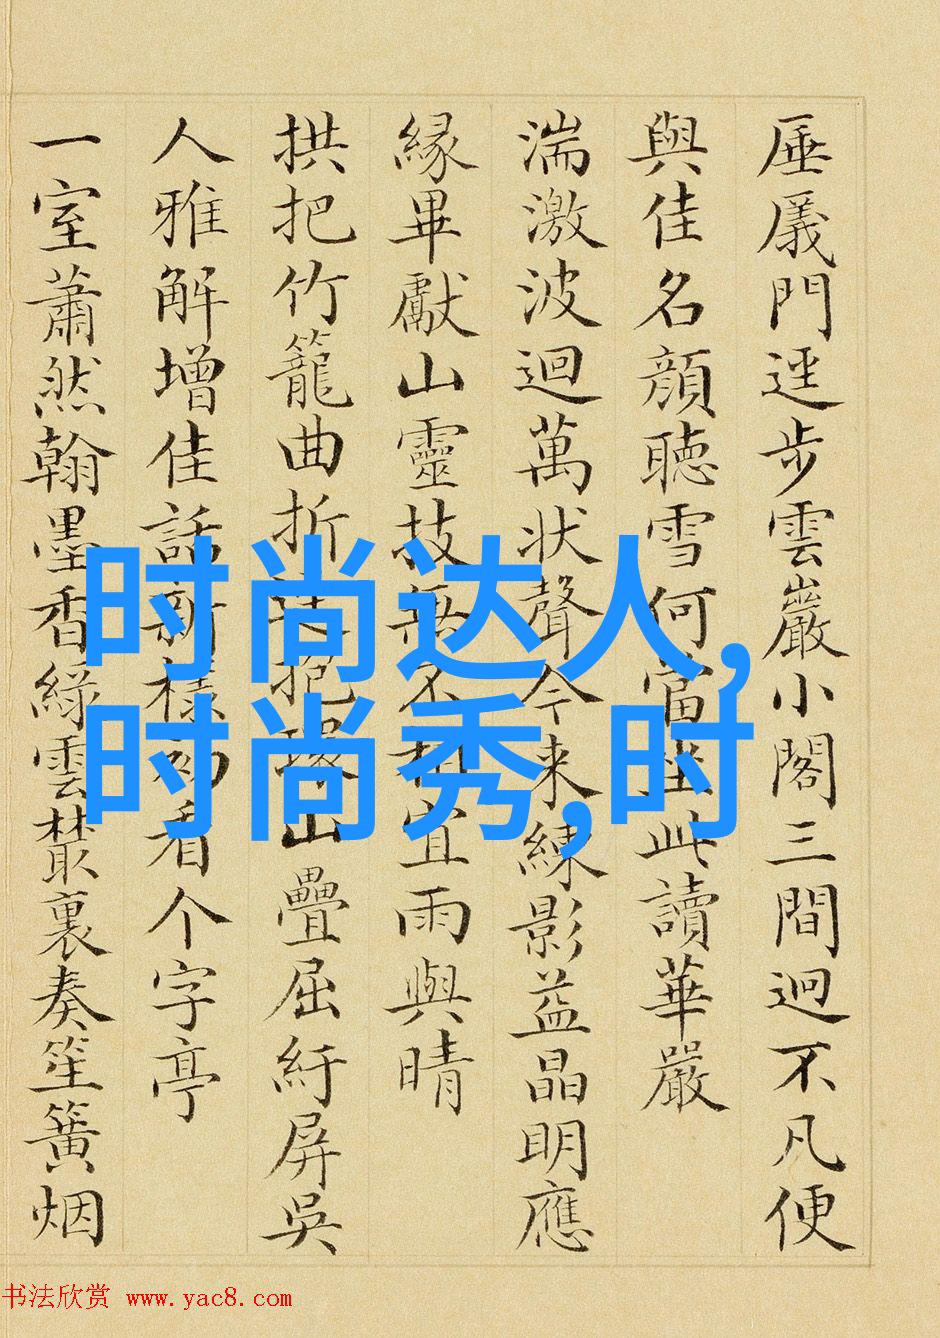 厜㕒門迳步雲巖小閣三間迥不凡便
與佳名顏聽雪何當坐此讀華嚴
湍激波迴萬狀聲今来練影益晶明應
緣畢獻山靈技無不相宜雨與晴
拱把竹籠曲折抱山疊屈紆屏吳
人雅解增佳話新樣初看个字亭
一室蕭然翰墨香綠雲叢裏奏笙簧烟
时尚达人,
时尚秀,时
书法欣赏 www.yac8.com